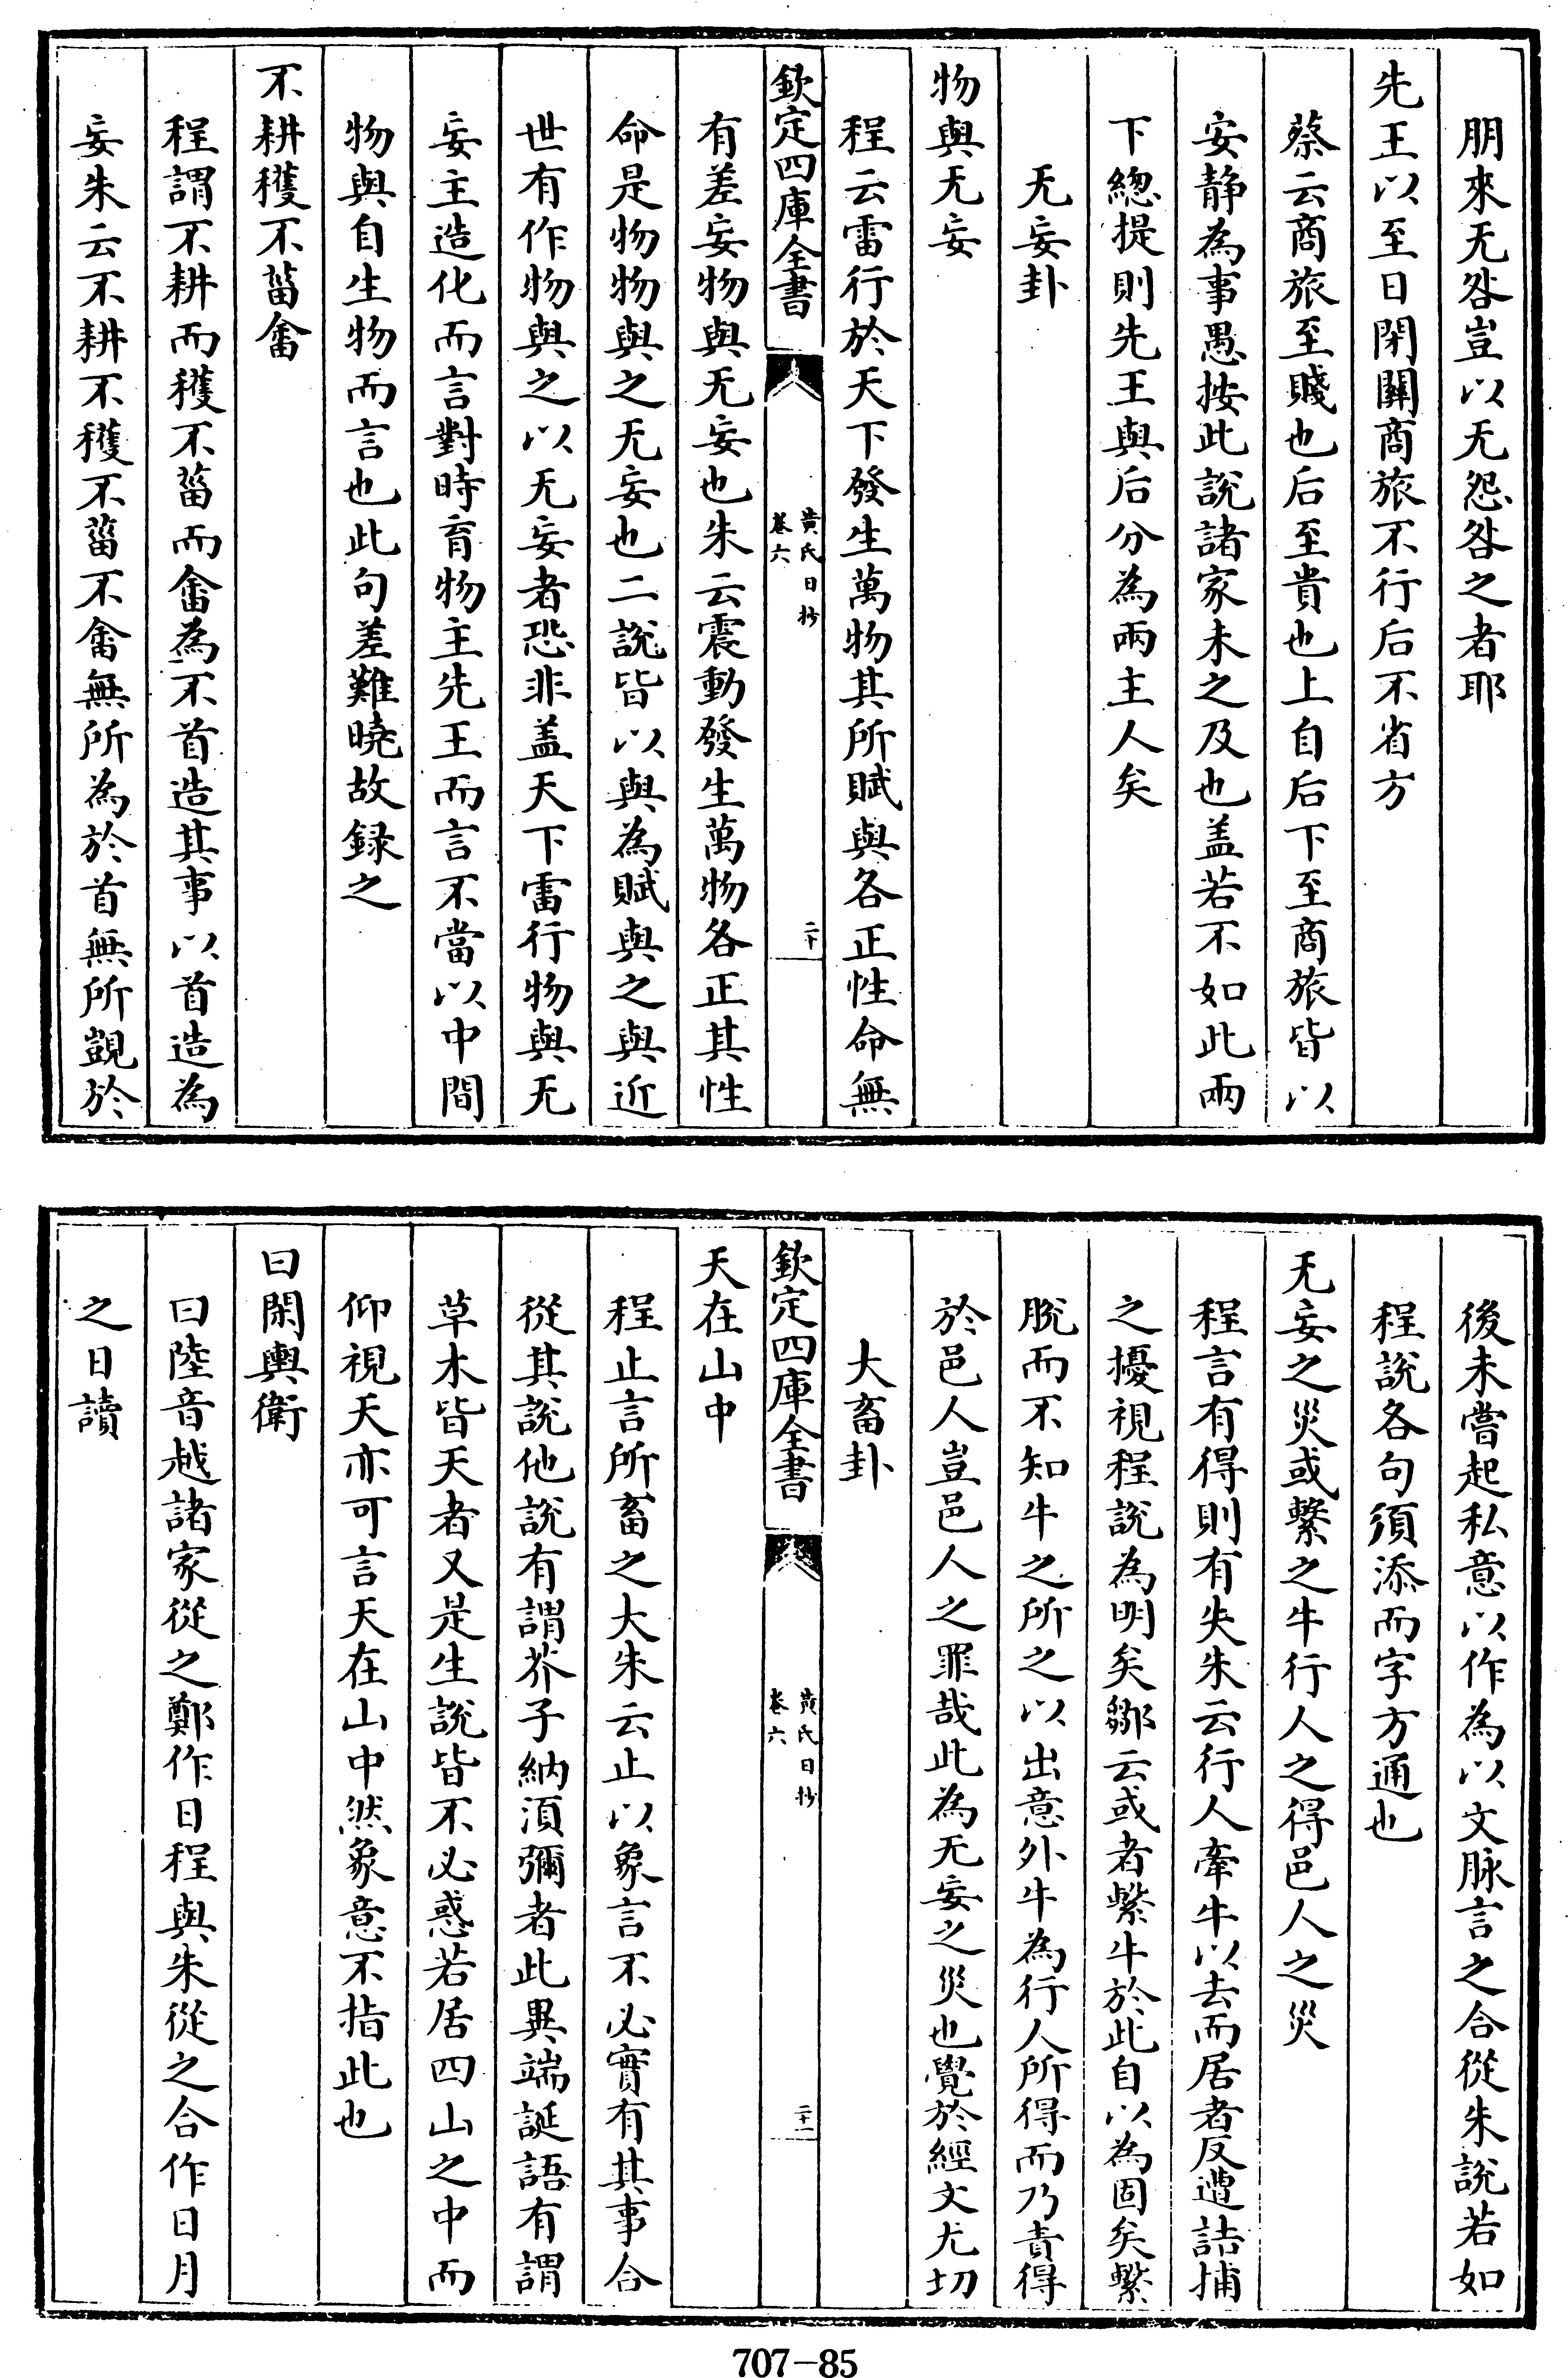 朋來无咎豈以无怨咎之者耶
先王以至日閉關商旅不行后不省方
蔡云商旅至賤也后至貴也上自后下至商旅皆以
安静為事愚按此說諸家未之及也盖若不如此兩
下緫提則先王與后分為兩主人矣
无妄卦
物與无妄
程云雷行於天下發生萬物其所賦與各正性命無
欽定四庫全書
黄氏日抄
卷六
二十
有差妄物與无妄也朱云震動發生萬物各正其性
命是物物與之无妄也二說皆以與為賦與之與近
世有作物與之以无妄者恐非盖天下雷行物與无
妄主造化而言對時育物主先王而言不當以中間
物與自生物而言也此句差難曉故録之
不耕穫不菑畬
程謂不耕而穫不菑而畬為不首造其事以首造為
妄朱云不耕不穫不菑不畬無所為於首無所覬於
後未嘗起私意以作為以文脉言之合從朱說若如
程說各句須添而字方通也
无妄之災或繫之牛行人之得邑人之災
程言有得則有失朱云行人牽牛以去而居者反遭詰捕
之擾視程說為明矣鄒云或者繫牛於此自以為固矣繫
脫而不知牛之所之以出意外牛為行人所得而乃責得
於邑人豈邑人之罪哉此為无妄之災也覺於經文尤切
大畜卦
欽定四庫全書
黄氏日抄
卷六
二十一
天在山中
程止言所畜之大朱云止以象言不必實有其事合
從其說他說有謂芥子納湏彌者此異端誕語有謂
草木皆天者又是生說皆不必惑若居四山之中而
仰視天亦可言天在山中然象意不指此也
曰閑輿衛
曰陸音越諸家從之鄭作日程與朱從之合作日月
之日讀
707-85